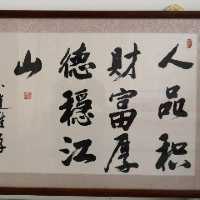 人品积
财富厚
德稳江
山